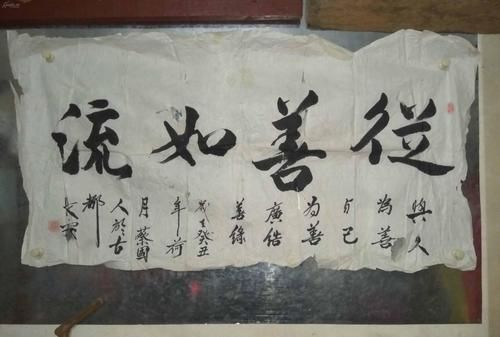 從善如流
與人
為善
與己
為善
廣結
善緣
歲在癸丑
年荷
月蔡國
人於古
都
長安